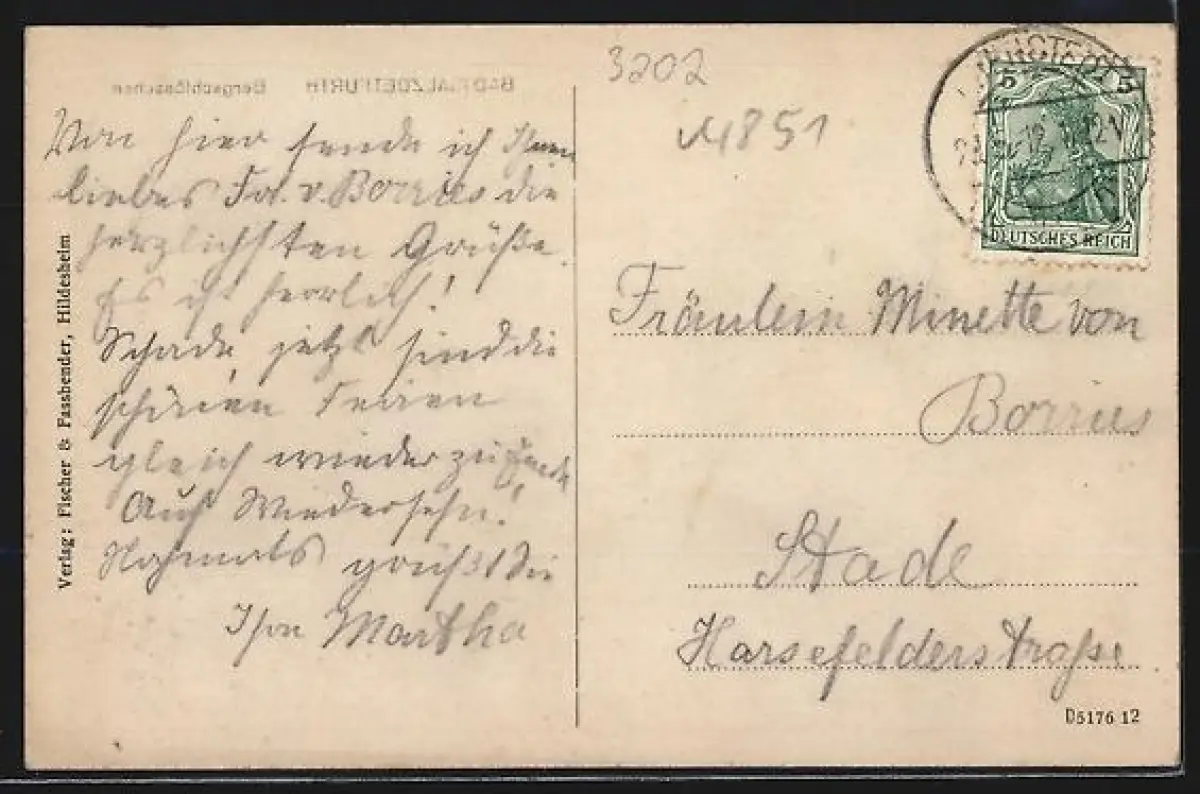 BAD SALZDETFURTH Bergschlösschen
Von hier sende ich Ihnen
liebes Frl. v. Borries die
herzlichsten Grüße.
Es ist herrlich!
Schade, jetzt sind die
schönen Ferien
gleich wieder zu Ende
Auf Wiedersehn!
Nochmals grüßt Sie
Ihre Martha
Verlag: Fischer & Fassbender, Hildesheim
3202
851
5 5
DEUTSCHES REICH
Fräulein Minette von
Borries
Stade
Harsefelderstraße
D5176 12